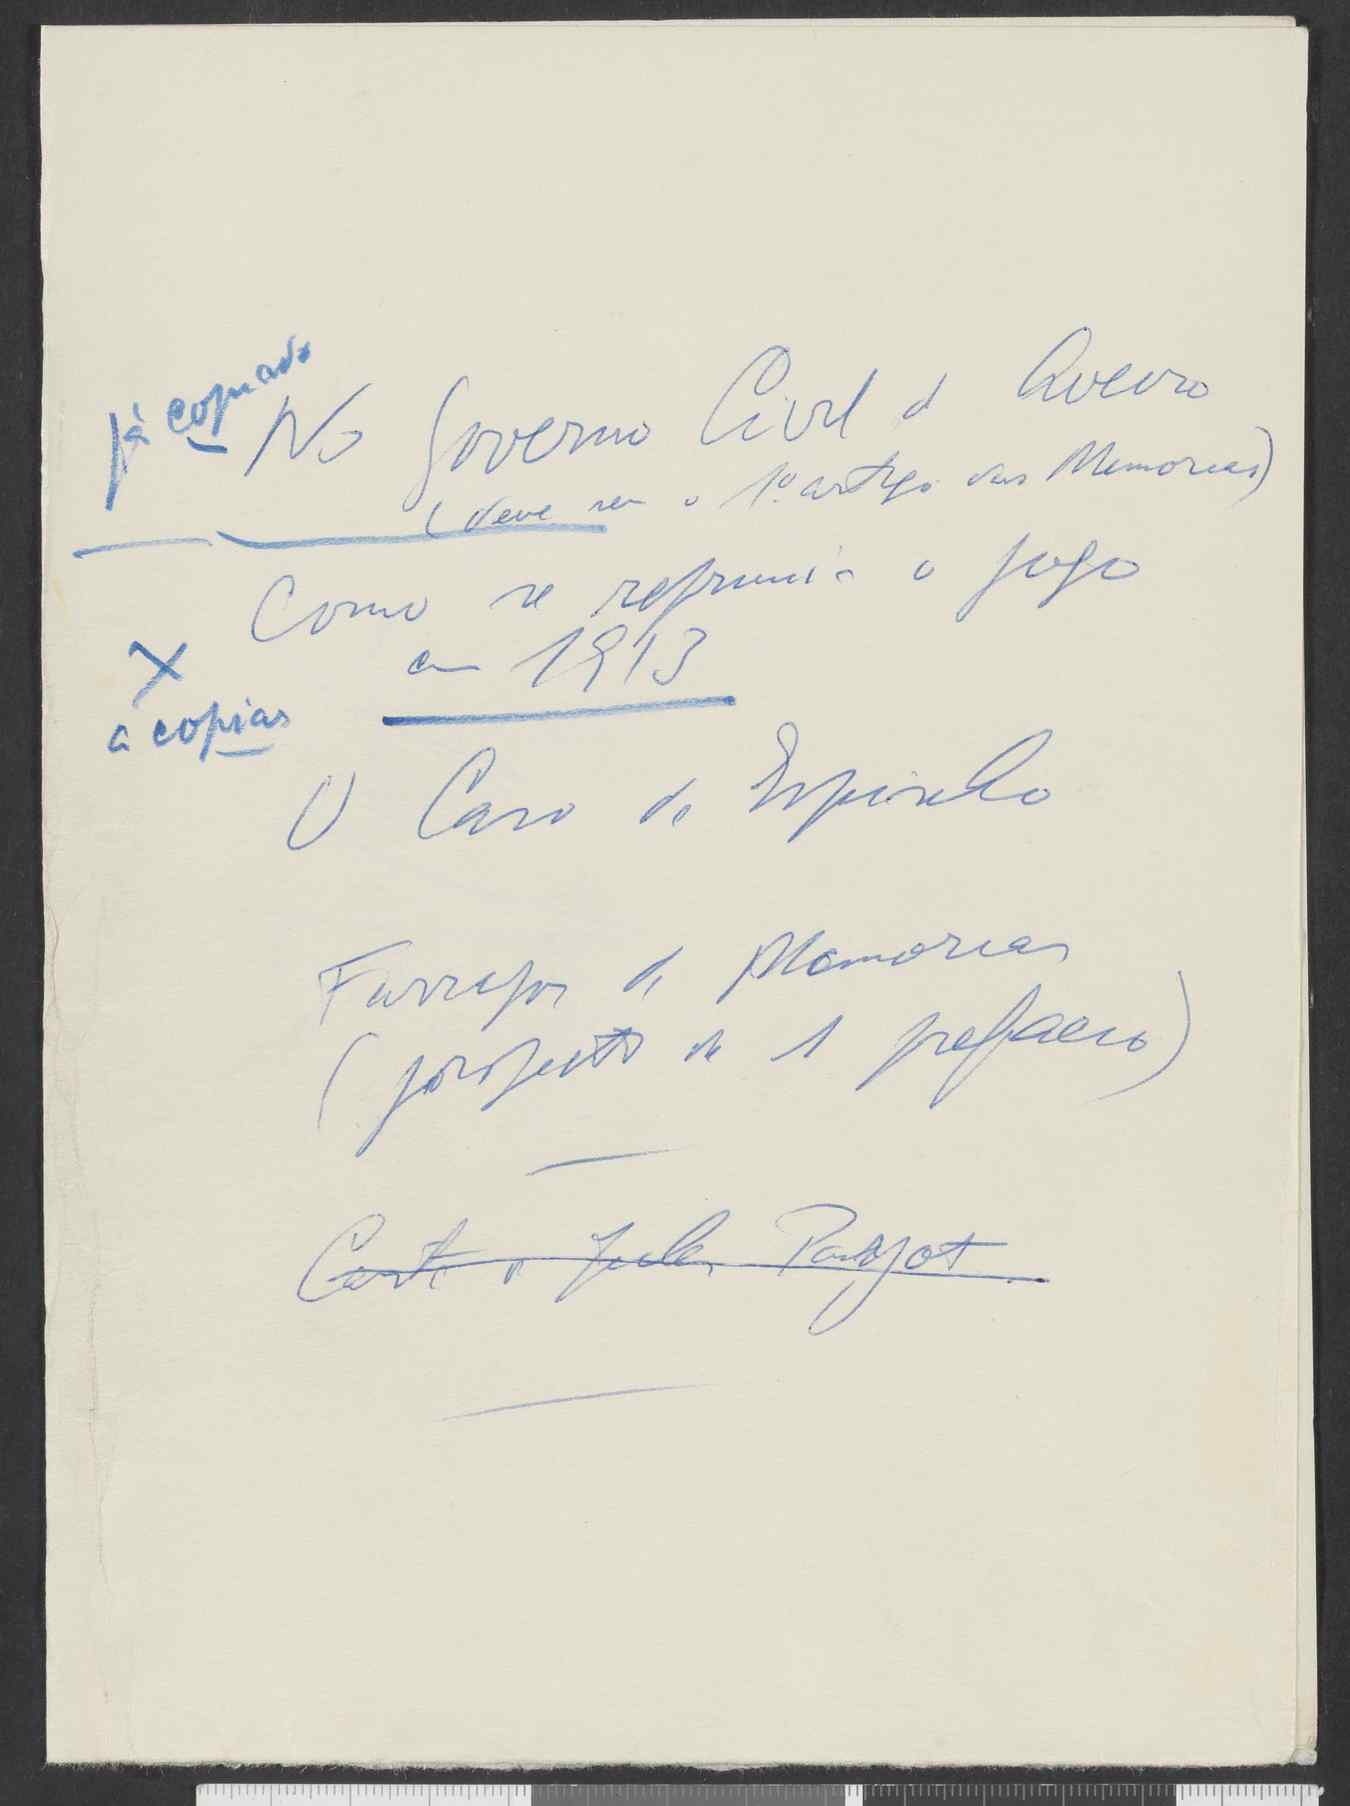 já copiado
No Governo Civil d Aveiro
(deve ser o 1º artigo das Memorias)
Como se reprimia o jogo
em 1913
X
a copiar
O Caso de Espinho
Farrapos de Memorias
(projecto de 1 prefacio)
Carta a Jules Payot